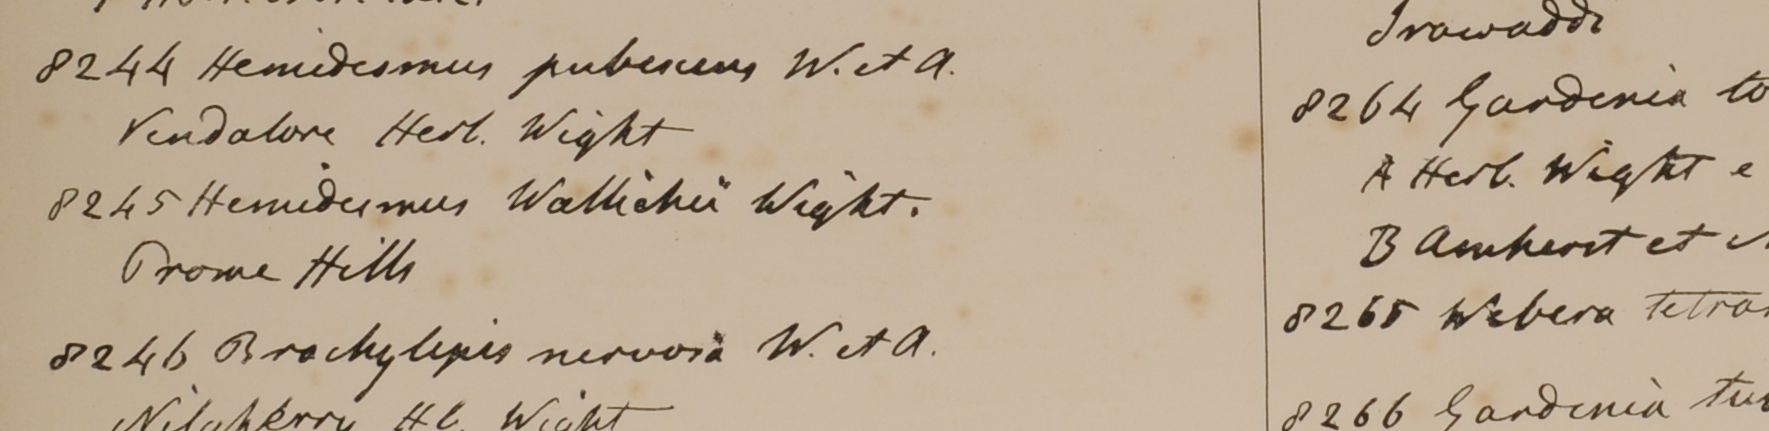 8244 Hemidesmus pubescens W. et A.
Vendalore Herb. Wight
8245 Hemidesmus Wallichii Wight.
Prome Hills
8246 Brachylepis nervosa W. et A.
Nilgherry Hb. Wight
Irawaddi
8264 Gardenia to
A Herb. Wight e
B Amherst et
8265 Webera tetra
8266 Gardenia tu